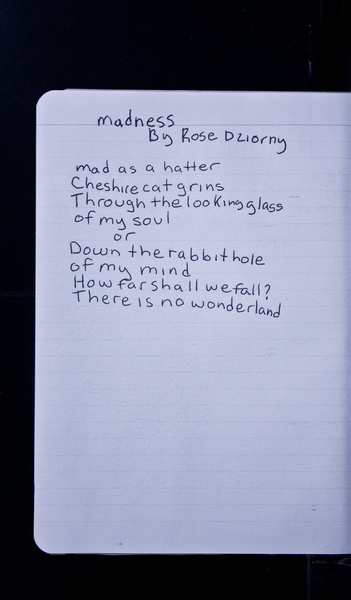 madness
By Rose Dziorny
mad as a hatter
Cheshire cat grins
Through the looking glass
of my soul
or
Down the rabbit hole
of my mind
How far shall we fall?
There is no wonderland